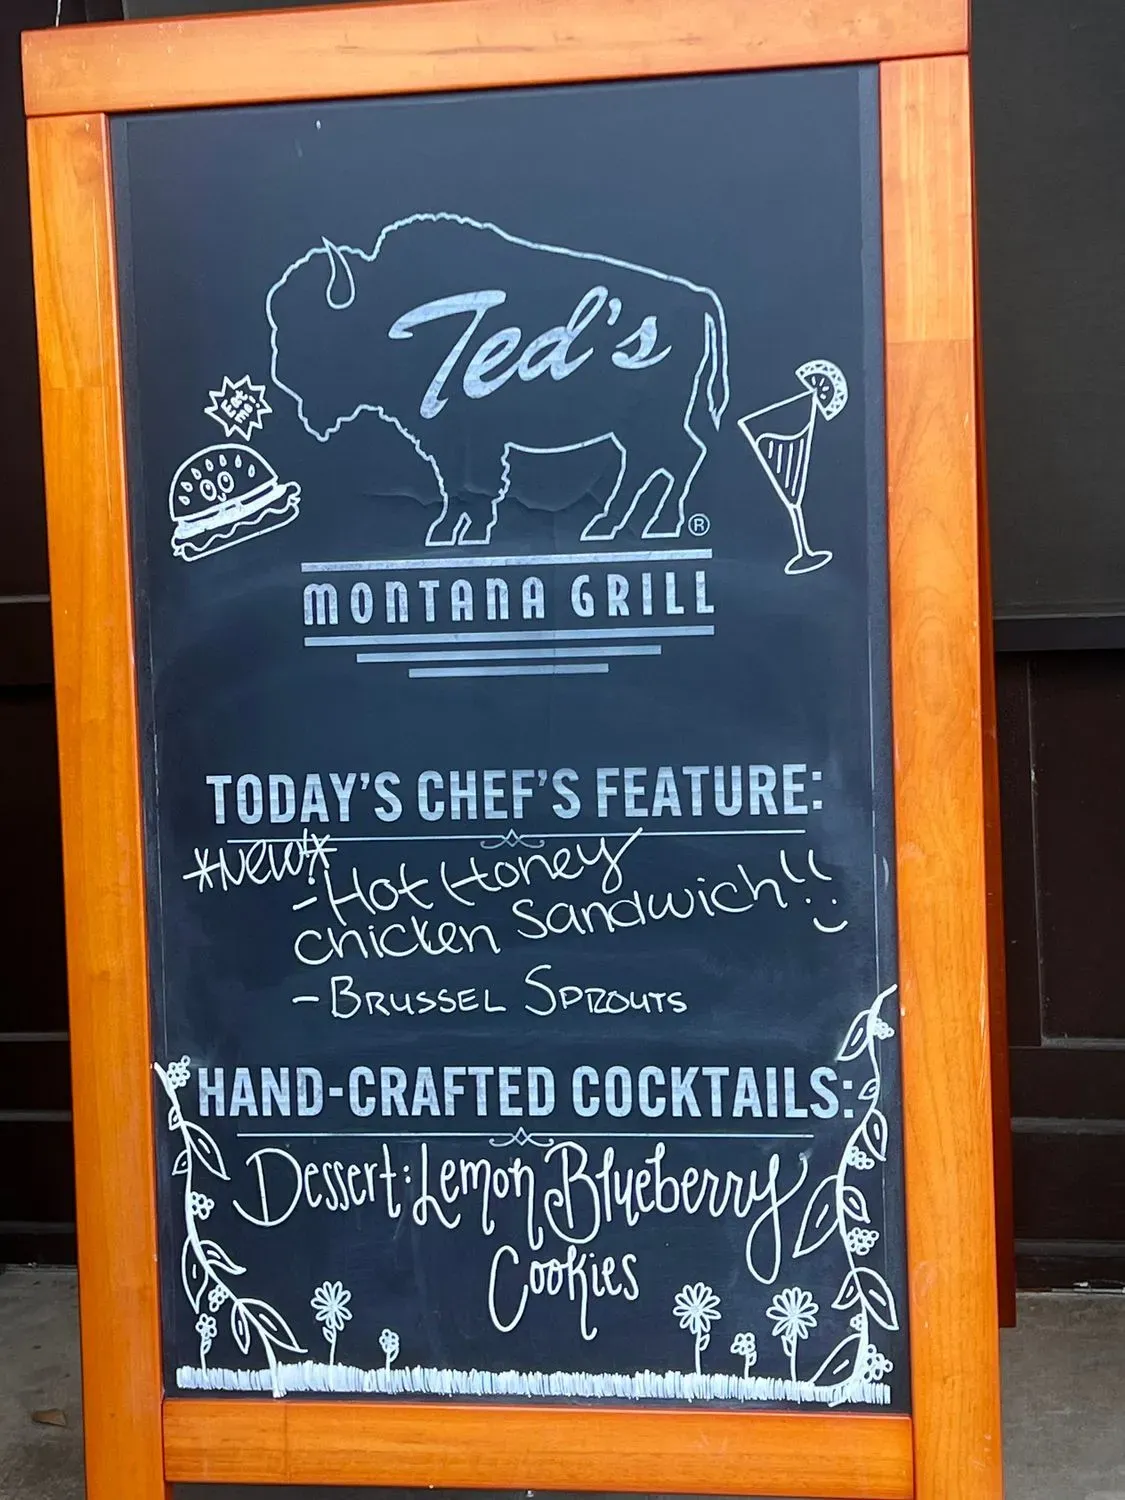 Ted's
Eat
me!
®
MONTANA GRILL
TODAY'S CHEF'S FEATURE:
*New!*
-Hot Honey
chicken Sandwich!! :)
- BRUSSEL SPROUTS
HAND-CRAFTED COCKTAILS:
Dessert: Lemon Blueberry
Cookies